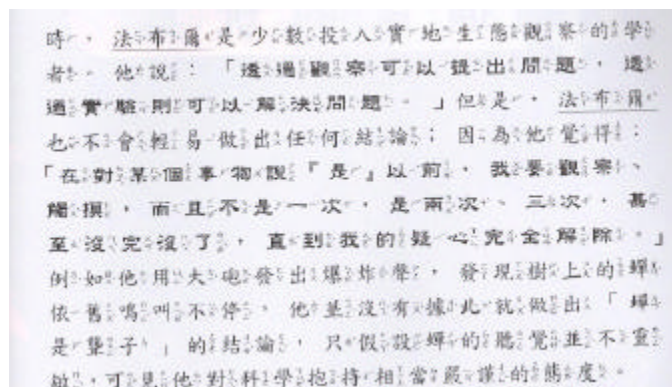 時，法布爾是少數投入實地生態觀察的學
者。他說：「透過觀察可以提出問題，透
過實驗則可以解決問題。」但是，法布爾
也不會輕易做出任何結論；因為他覺得：
「在對某個事物說『是』以前，我要觀察、
觸摸，而且不是一次，是兩次、三次，甚
至沒完沒了，直到我的疑心完全解除。」
例如他用大砲發出爆炸聲，發現樹上的蟬
依舊鳴叫不停，他並沒有據此就做出「蟬
是聾子」的結論，只假設蟬的聽覺並不靈
敏，可見他對科學抱持相當嚴謹的態度。